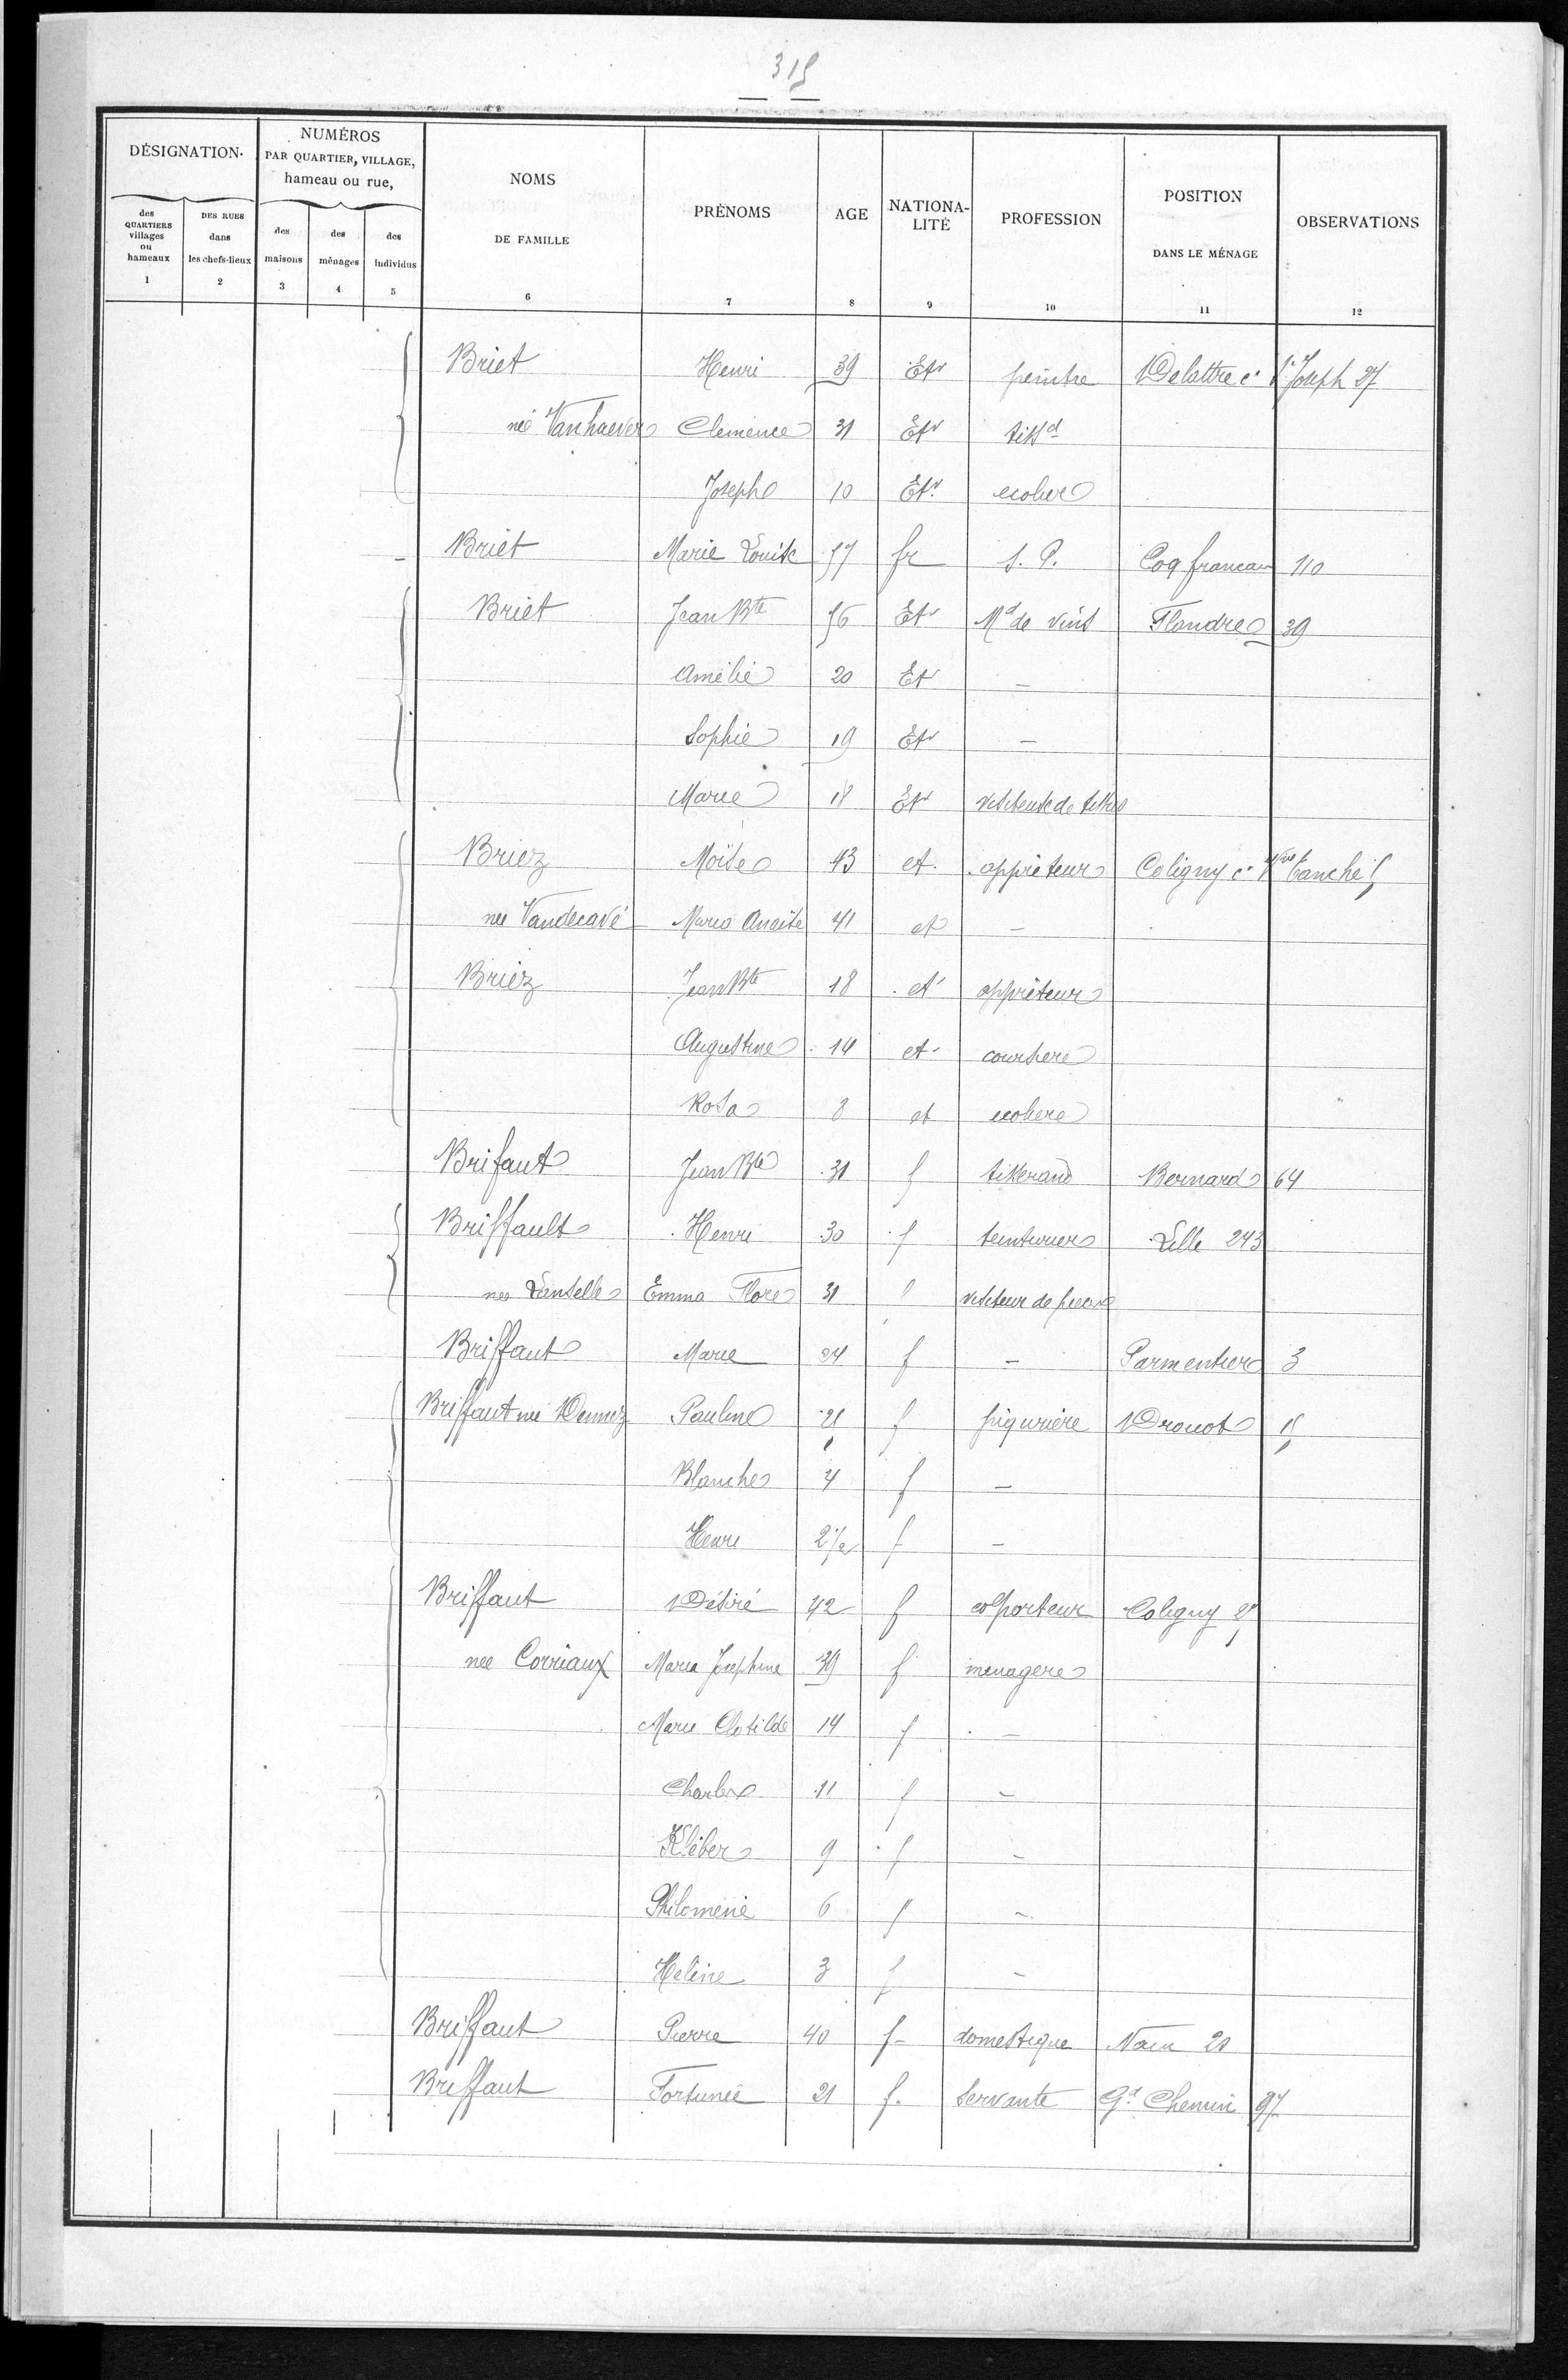 315
DÉSIGNATION.
NUMÉROS
PAR QUARTIER, VILLAGE,
hameau ou rue,
des QUARTIERS villages ou hameaux
DES RUES dans les chefs-lieux
des maisons
des ménages
des individus
NOMS DE FAMILLE
PRÉNOMS
AGE
NATIONA-LITÉ
PROFESSION
POSITION DANS LE MÉNAGE
OBSERVATIONS
1 2 3 4 5 6 7 8 9 10 11 12
Briet Henri 39 Etr peintre Delattre c. St Joseph 27
née Vanhaever Clemence 31 Etr tissd
Joseph 10 Etr ecolier
Briet Marie Louise 57 fr S. P. Coq francais 110
Briet Jean Bte 56 Etr Md de vins Flandre 39
Amélie 20 Et —
Sophie 19 Etr —
Marie 18 Etr visiteuse de tissus
Briez Moïse 43 et. appreteur Coligny c. Vve Canche 5
née Vandecavé Maria Anaïse 41 et —
Briez Jean Bte 18 et appréteur
Augustine 14 et. courtiere
Rosa 8 et ecoliere
Brifaut Jean Bte 31 f tisserand Bernard 64
Briffault Henri 30 f teinturier Lille 243
née Lanselle Emma Flore 31 f visiteur de pieces
Briffaut Marie 24 f — Parmentier 3
Briffaut née Dennez Pauline 21 f piqurière Drouot 15
Blanche 4 f —
Henri 2 1/2 f —
Briffaut Désiré 42 f colporteur Coligny 25
née Corriaux Maria Josephine 39 f menagere
Marie Clotilde 14 f —
Charles 11 f —
Kléber 9 f —
Philomène 6 f —
Helène 3 f —
Briffaut Pierre 40 f domestique Nain 20
Briffaut Fortunée 21 f. Servante Gd Chemin 97